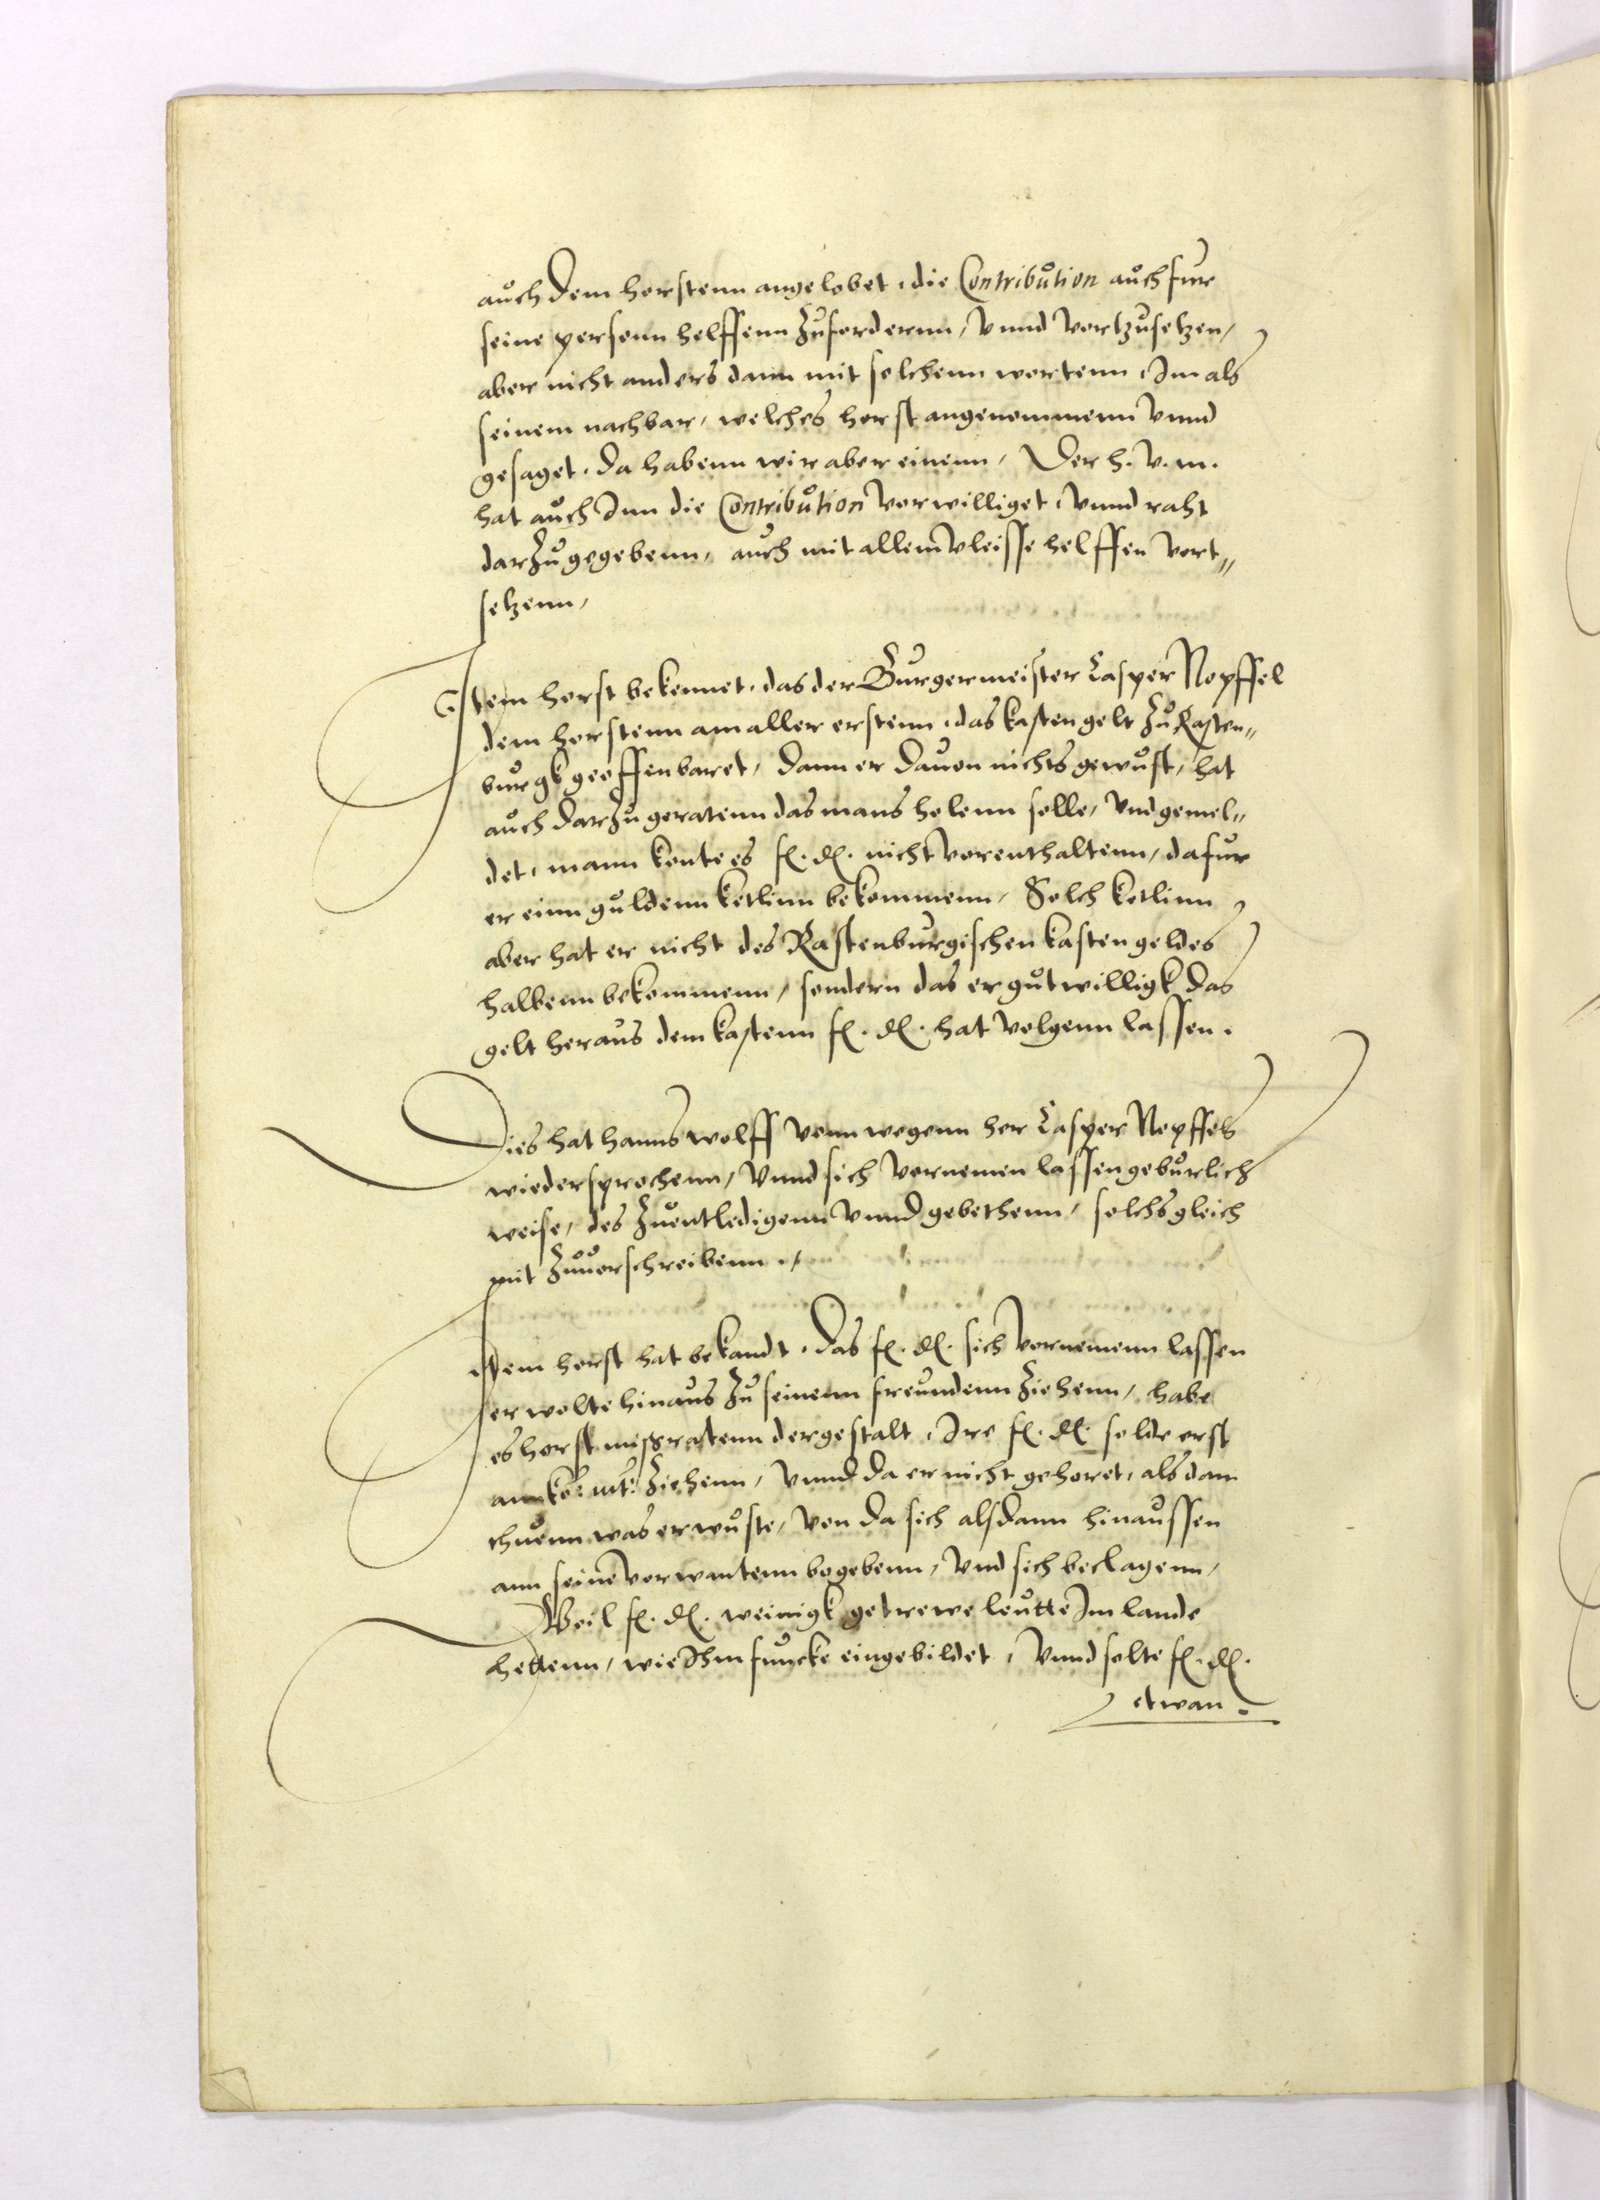 auch dem horstenn angelobet, die Contribution auch fur
seine personn helffenn zufordernn, vnnd vortzusetzen,
aber nicht anders dann mit solchenn wortenn, Im als
seinem nachbar, welches horst angenommenn vnnd
gesaget, da habenn wir aber einenn, Der h. v. m.
hat auch Inn die Contribution vorwilliget, vnnd raht
darzu gegebenn, auch mit allem vleisse helffen vort„
setzenn,
Item horst bekennet, das der Burgermeister Casper Nopffel
dem horstenn am aller erstenn, das kasten gelt zu Rasten„
burgk geoffenbaret, dann er dauon nichts gewust, hat
auch darzu geratenn das mans holenn solle, vnd gemel„
det, mann konte es f. d. nicht vorenthaltenn, dafur
er einn guldenn ketlinn bekommenn, Solch ketlinn
aber hat er nicht des Rastenburgischen kasten geldes
halbenn bekommenn, sondern das er gutwilligk das
gelt heraus dem kastenn f. d. hat volgenn lassen.
Dies hat hanns wolff vonn wegenn her Casper Nopffels
wiedersprochenn, vnnd sich vornemen lassen geburlich
weise, des zuentledigenn vnnd gebethenn, solchs gleich
mit zuuorschreibenn,
Item horst hat bekandt, das f. d. sich vornemenn lassen
er wolte hinaus zu seinenn freundenn ziehenn, habe
es horst missratenn dergestalt, Ire f. d. solde erst
ann ko: mt: ziehenn, vnnd da er nicht gehoret, als dan
thuenn was er wuste, von da sich alsdann hinaussen
ann seine vorwantenn begebenn, vnd sich beclagenn,
Weil f. d. weinigk getrewe leutte Im lande
hettenn, wie Ihm funcke eingebildet, vnnd solte f. d.
etwan